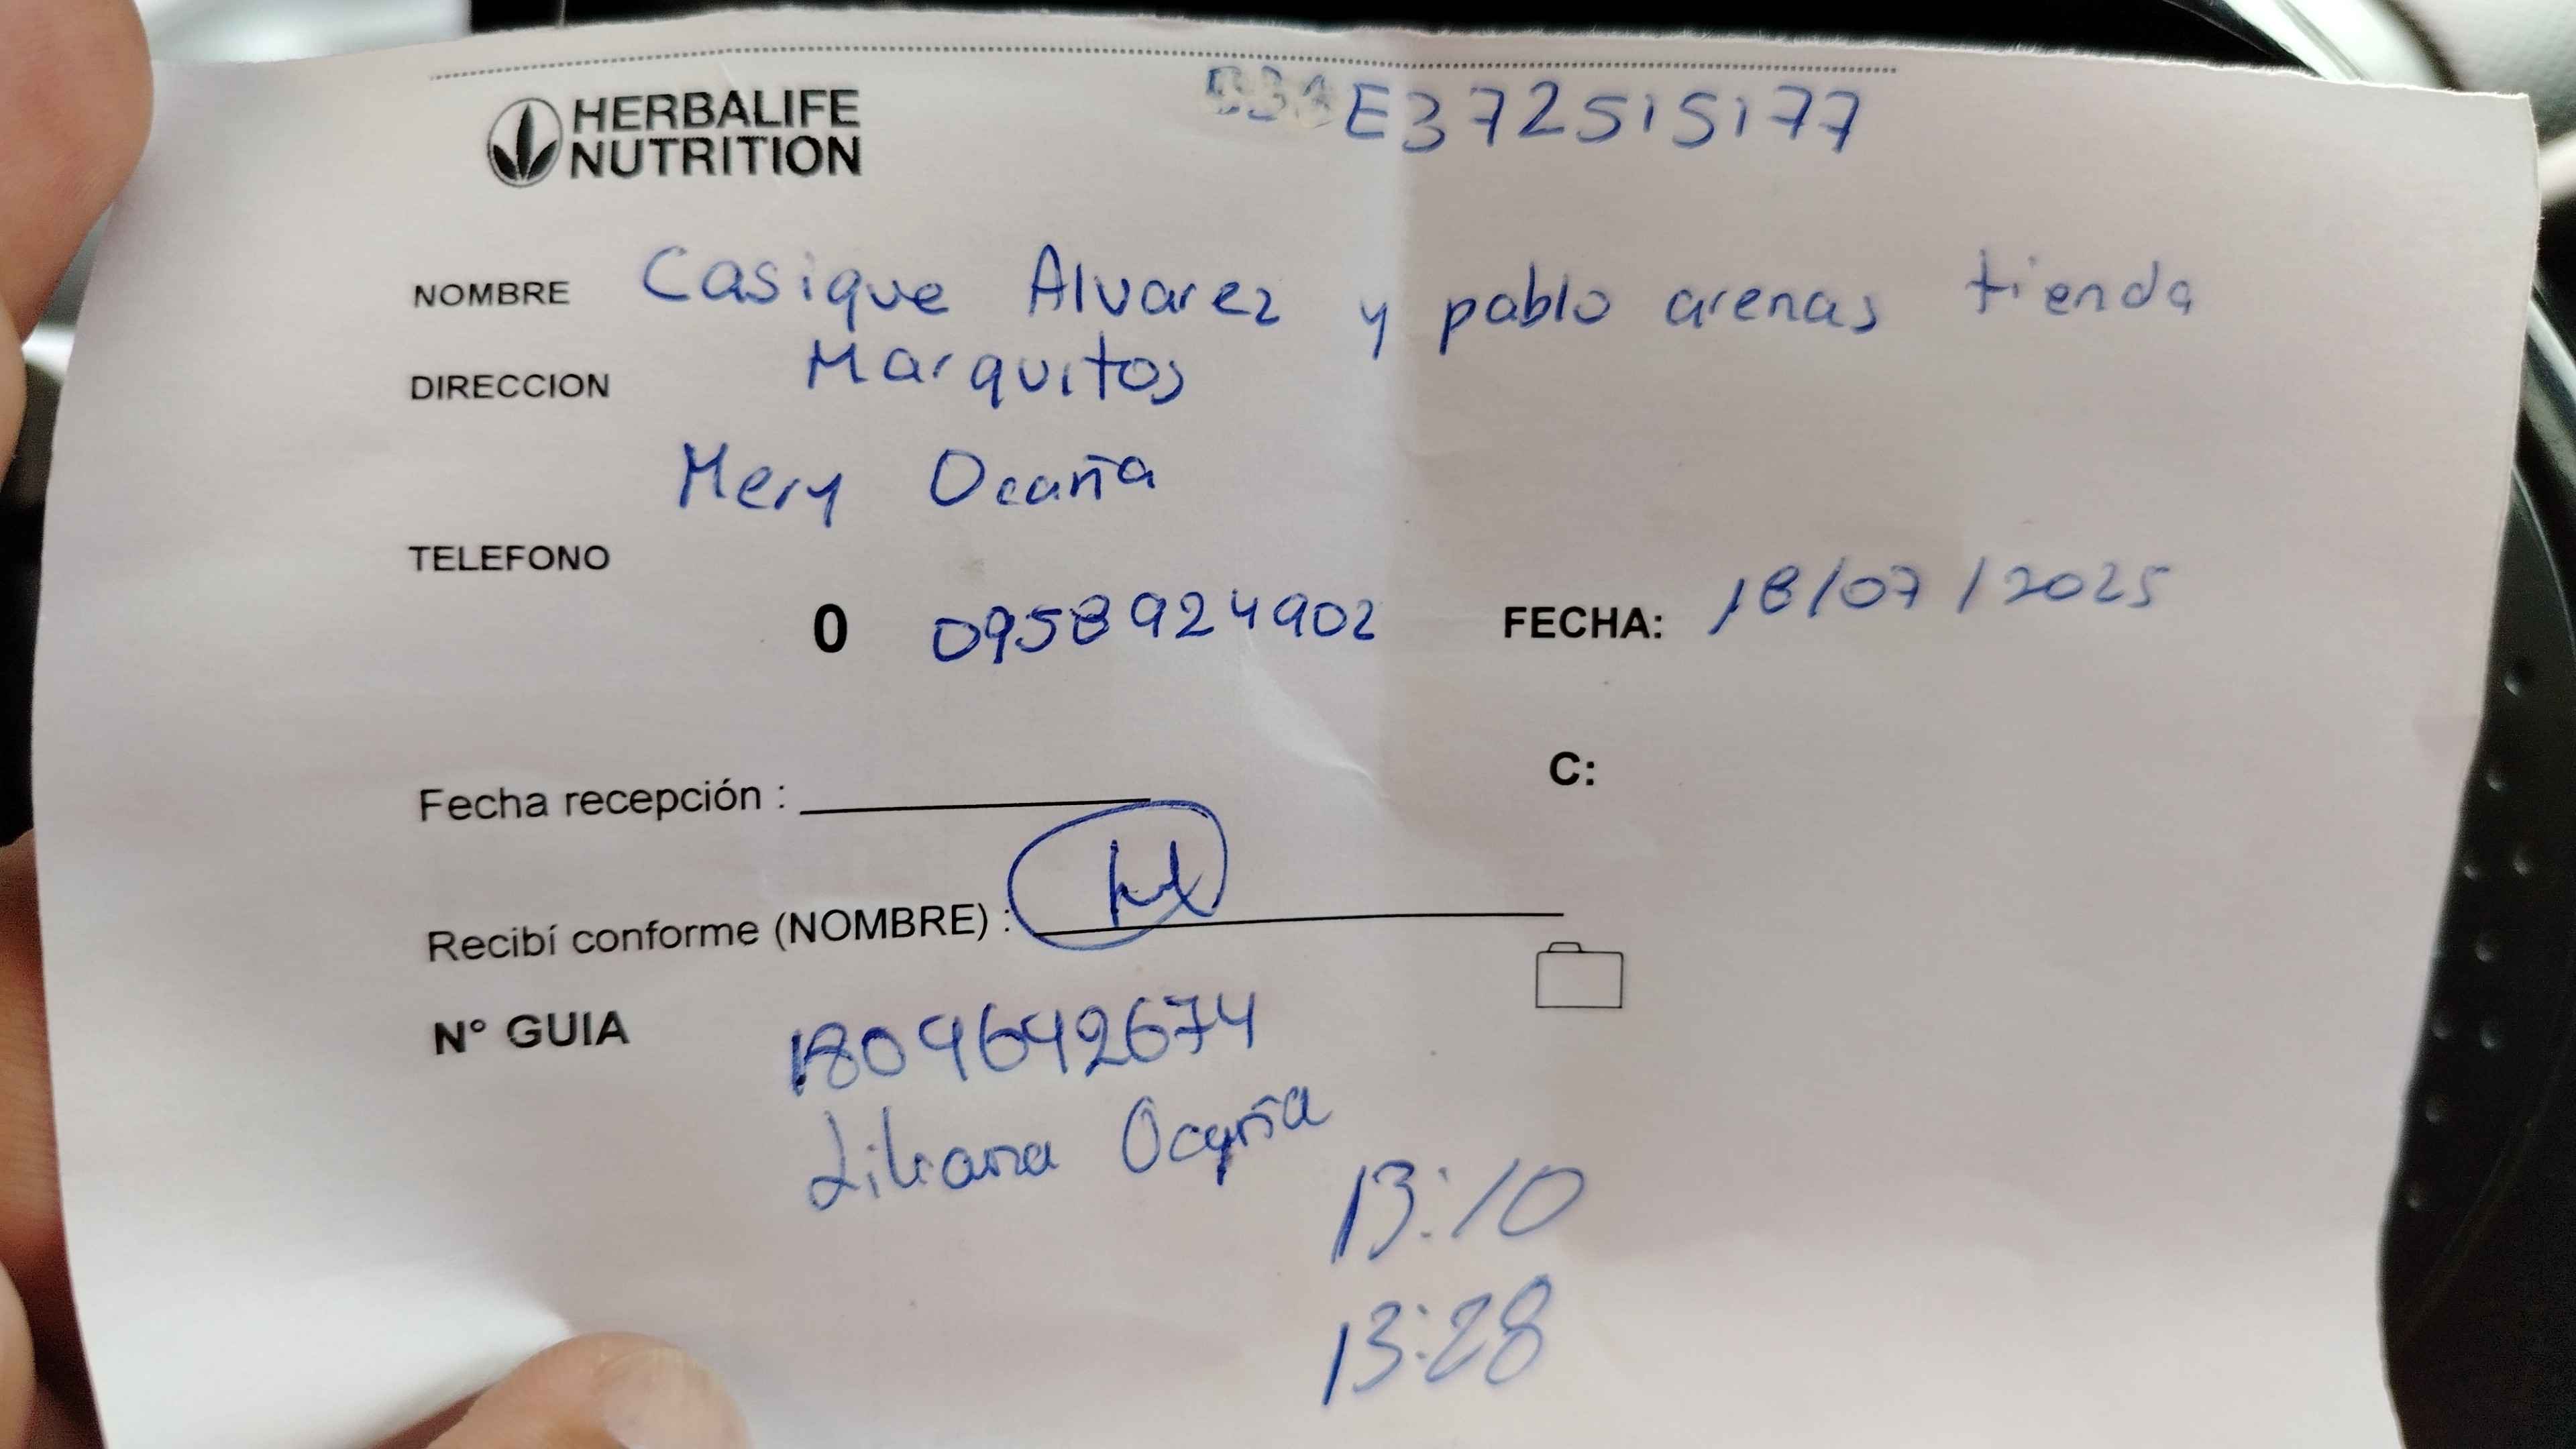 HERBALIFE
NUTRITION
E372515177
NOMBRE Casique Alvarez y pablo arenas tienda
DIRECCION Marquitos
Mery Ocaña
TELEFONO
0 0958924902 FECHA: 18/07/2025
C:
Fecha recepción :
Recibí conforme (NOMBRE) :
N° GUIA 1804642674
Liliana Ocaña
13:10
13:28